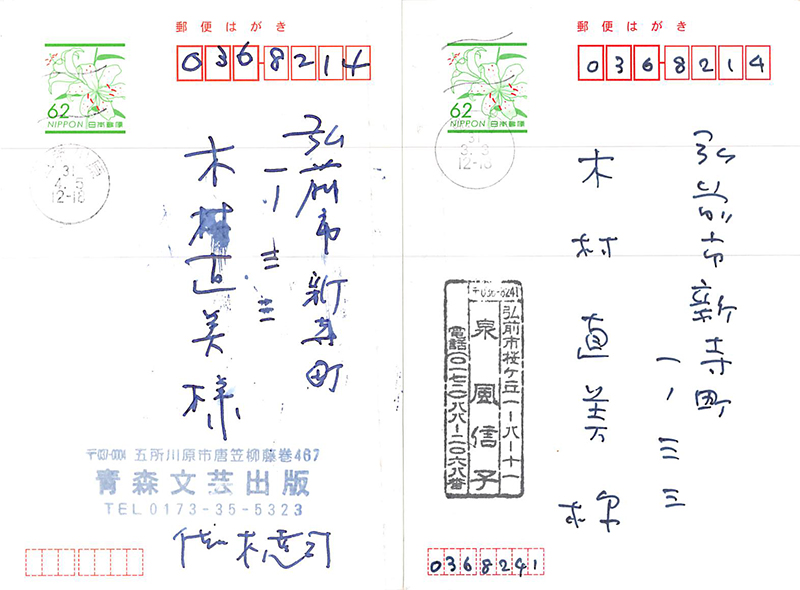 郵便はがき
0368214
62
NIPPON 日本郵便
12-18
弘前市新寺町
一ノ三三
木村直美様
五所川原市唐笠柳藤巻467
青森文芸出版
TEL 0173-35-5323
郵便はがき
0368214
62
NIPPON 日本郵便
31
3.3
12-18
弘前市新寺町
一ノ三三
木村直美様
〒036-8241
弘前市桜ケ丘一-八-十一
泉風信子
電話(〇一七二)八八-二〇六八番
0368241